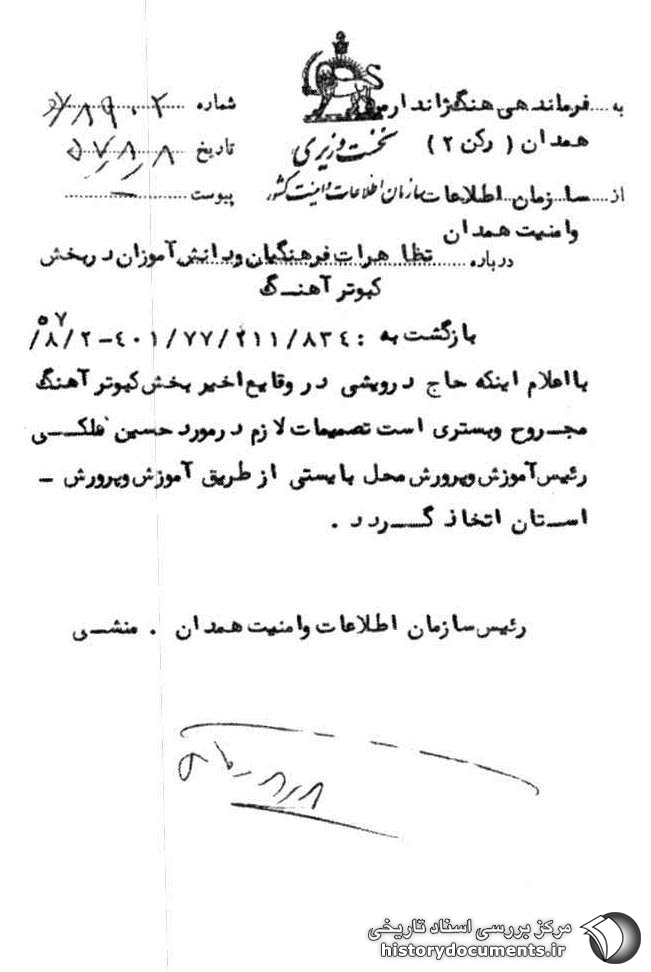 به.... فرماندهی هنگ ژاندارمری
همدان ( رکن ۲ )
نخست وزیری
سازمان اطلاعات و امنیت کشور
شماره
تاریخ ۵۷/۸/۸
پیوست —
از.... سازمان اطلاعات
وامنیت همدان
درباره.... تظاهرات فرهنگیان ودانش آموزان دربخش
کبوتر آهنگ
بازگشت به : ۸۳٤/
۴۰۱-۸/۲/۵۷
بااعلام اینکه حاج درویشی در وقایع اخیر بخش کبوتر آهنگ
مجروح وبستری است تصمیمات لازم درمورد حسین فلکی
رئیس آموزش وپرورش محل بایستی از طریق آموزش وپرورش -
استان اتخاذ گردد .
رئیس سازمان اطلاعات وامنیت همدان . منشی
مرکز بررسی اسناد تاریخی
historydocuments.ir